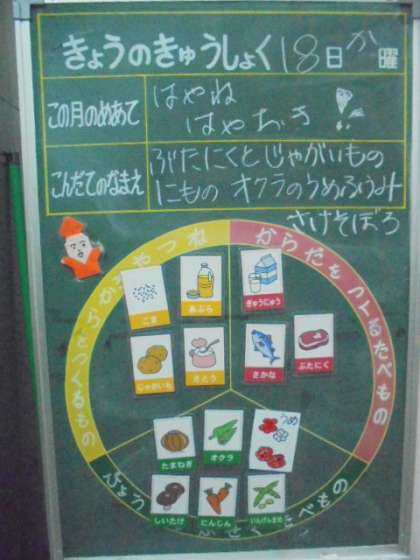 きょうのきゅうしょく 18日 か曜
この月のめあて
はやね
はやおき
こんだてのなまえ
ぶたにくとじゃがいもの
にもの オクラのうめふうみ
さけそぼろ
からだをつくるたべもの
ごま
あぶら
ぎゅうにゅう
じゃがいも
さとう
さかな
ぶたにく
うめ
たまねぎ
オクラ
しいたけ
にんじん
いんげんまめ